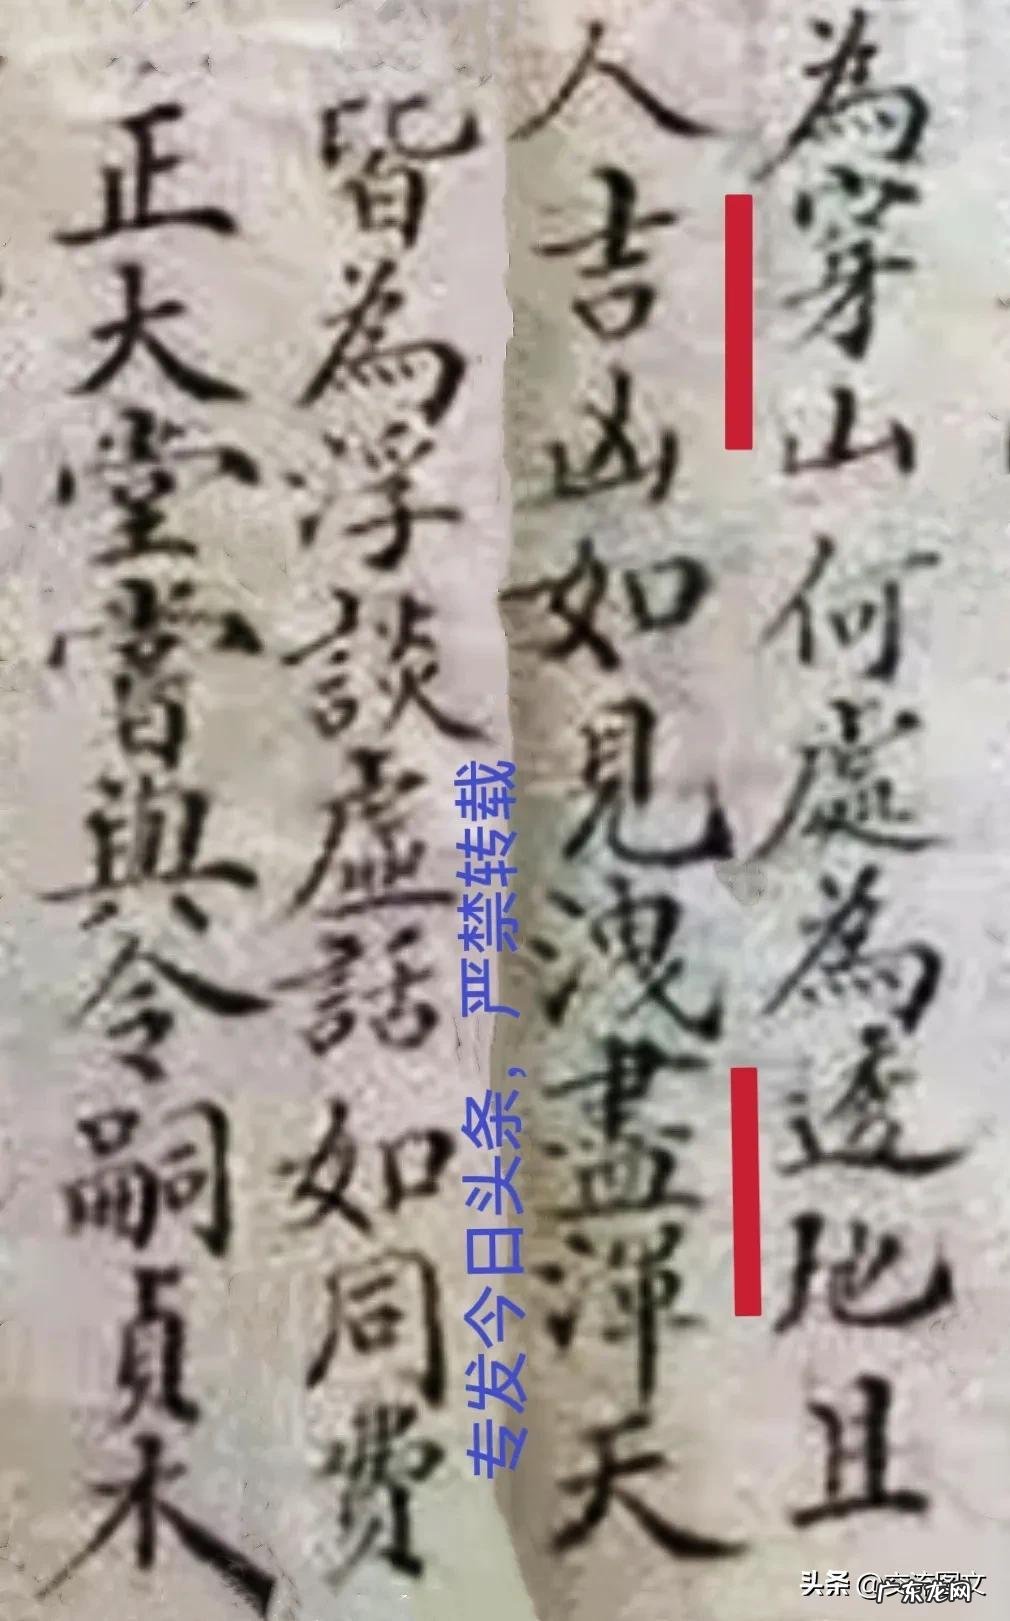 為穿山何處為透地且
人吉凶如見洩盡渾天
皆為浮談虛話如同費
正大堂嘗與令嗣貞木
专发今日头条，严禁转载
头条
广东龙网